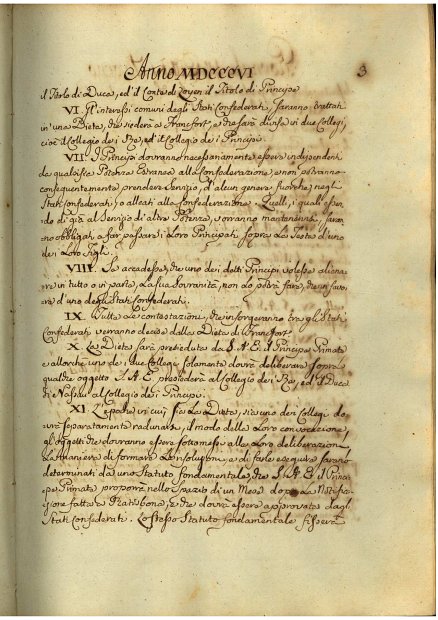 Anno MDCCCVI
3
il Titolo di Duca, ed il Conte di Leyen il Titolo di Principe
VI. Gl'interessi comuni degli Stati Confederati, saranno trattati
in una Dieta, che siederà a Francfort, e che sarà divisa in due Collegi,
cioè il Collegio dei Re, ed il Collegio dei Principi.
VII. I Principi dovranno necessariamente essere indipendenti
da qualsisia Potenza Estranea alla Confederazione, e non potranno
conseguentemente prendere Servizio d'alcun genere fuorchè negli
Stati Confederati, o alleati alla Confederazione. Quelli, i quali essen-
do di già al Servizio di altre Potenze, vorranno mantenervisi, saran-
no obbligati a far passare i Loro Principati sopra la Testa d'uno
dei Loro Figli.
VIII. Se accadesse, che uno dei detti Principi volesse aliena-
re in tutto o in parte, la sua Sovranità, non lo potrà fare, che in favo-
re d'uno degli Stati Confederati.
IX. Tutte le contestazioni, che insorgeranno tra gli Stati
Confederati verranno decise dalla Dieta di Francfort
X. La Dieta sarà presieduta da S. A. E. il Principe Primate
e allorchè uno dei due Collegi solamente dovrà deliberare sopra
qualche oggetto S. A. E. presiederà al Collegio dei Re, ed il Duca
di Nassau al Collegio dei Principi.
XI. L'epoche in cui sia la Dieta, sia uno dei Collegi do-
vrà separatamente radunarsi, il modo della Loro convocazione,
gl'oggetti che dovranno essere sottomessi alla Loro deliberazione
La maniera di formare le risoluzioni, e di farle eseguire saranno
determinati da uno Statuto fondamentale, che S. A. E. il Princi-
pe Primate proporrà nello Spazio di un Mese dopo la Notifica-
zione fatta a Ratisbona, e che dovrà essere approvato dagli
Stati Confederati. Lo stesso Statuto fondamentale fisserà